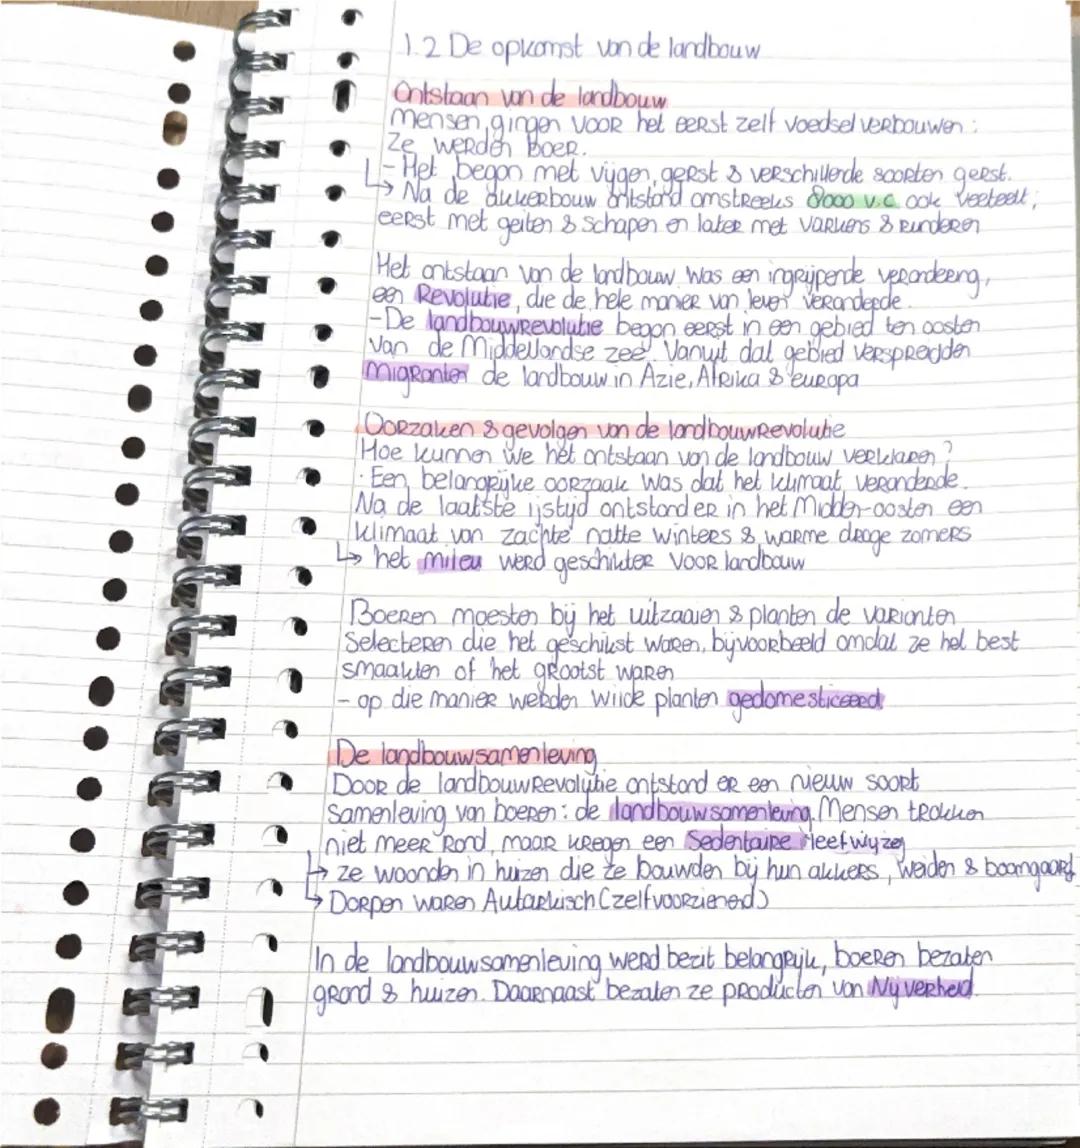 1.2 De opkomst van de landbouw
Ontstaan van de landbouw
mensen gingen voor het eerst zelf voedsel verbouwen :
Ze werden Boer.
- Het begon met vijgen, gerst & verschillende soorten gerst.
→ Na de akkerbouw ontstond omstreeks 8000 v.c. ook veeteelt;
eerst met geiten & schapen en later met varkens & runderen
Het ontstaan van de landbouw was een ingrijpende verandering,
een Revolutie, die de hele manier van leven veranderde.
-De landbouwrevolutie begon eerst in een gebied ten oosten
van de Middellandse zee. Vanuit dat gebied verspreidden
migranten de landbouw in Azie, Afrika & europa
Oorzaken & gevolgen van de landbouwrevolutie
Hoe kunnen we het ontstaan van de landbouw verklaren?
· Een belangrijke oorzaak was dat het klimaat veranderde.
Na de laatste ijstijd ontstond er in het Midden-oosten een
klimaat van zachte natte winters & warme droge zomers
↳ het milieu werd geschikter voor landbouw
Boeren moesten bij het uitzaaien & planten de varianten
Selecteren die het geschikst waren, bijvoorbeeld omdat ze het best
smaakten of het grootst waren
- op die manier werden wilde planten gedomesticeerd
De landbouwsamenleving
Door de landbouwrevolutie ontstond er een nieuw soort
Samenleving van boeren: de landbouwsamenleving. Mensen trokken
niet meer rond, maar kregen een Sedentaire leefwijze
→ ze woonden in huizen die ze bouwden bij hun akkers, weiden & boomgaard
→ Dorpen waren Autarkisch (zelfvoorzienend)
In de landbouwsamenleving werd bezit belangrijk, boeren bezaten
grond & huizen. Daarnaast bezaten ze producten van Nijverheid.